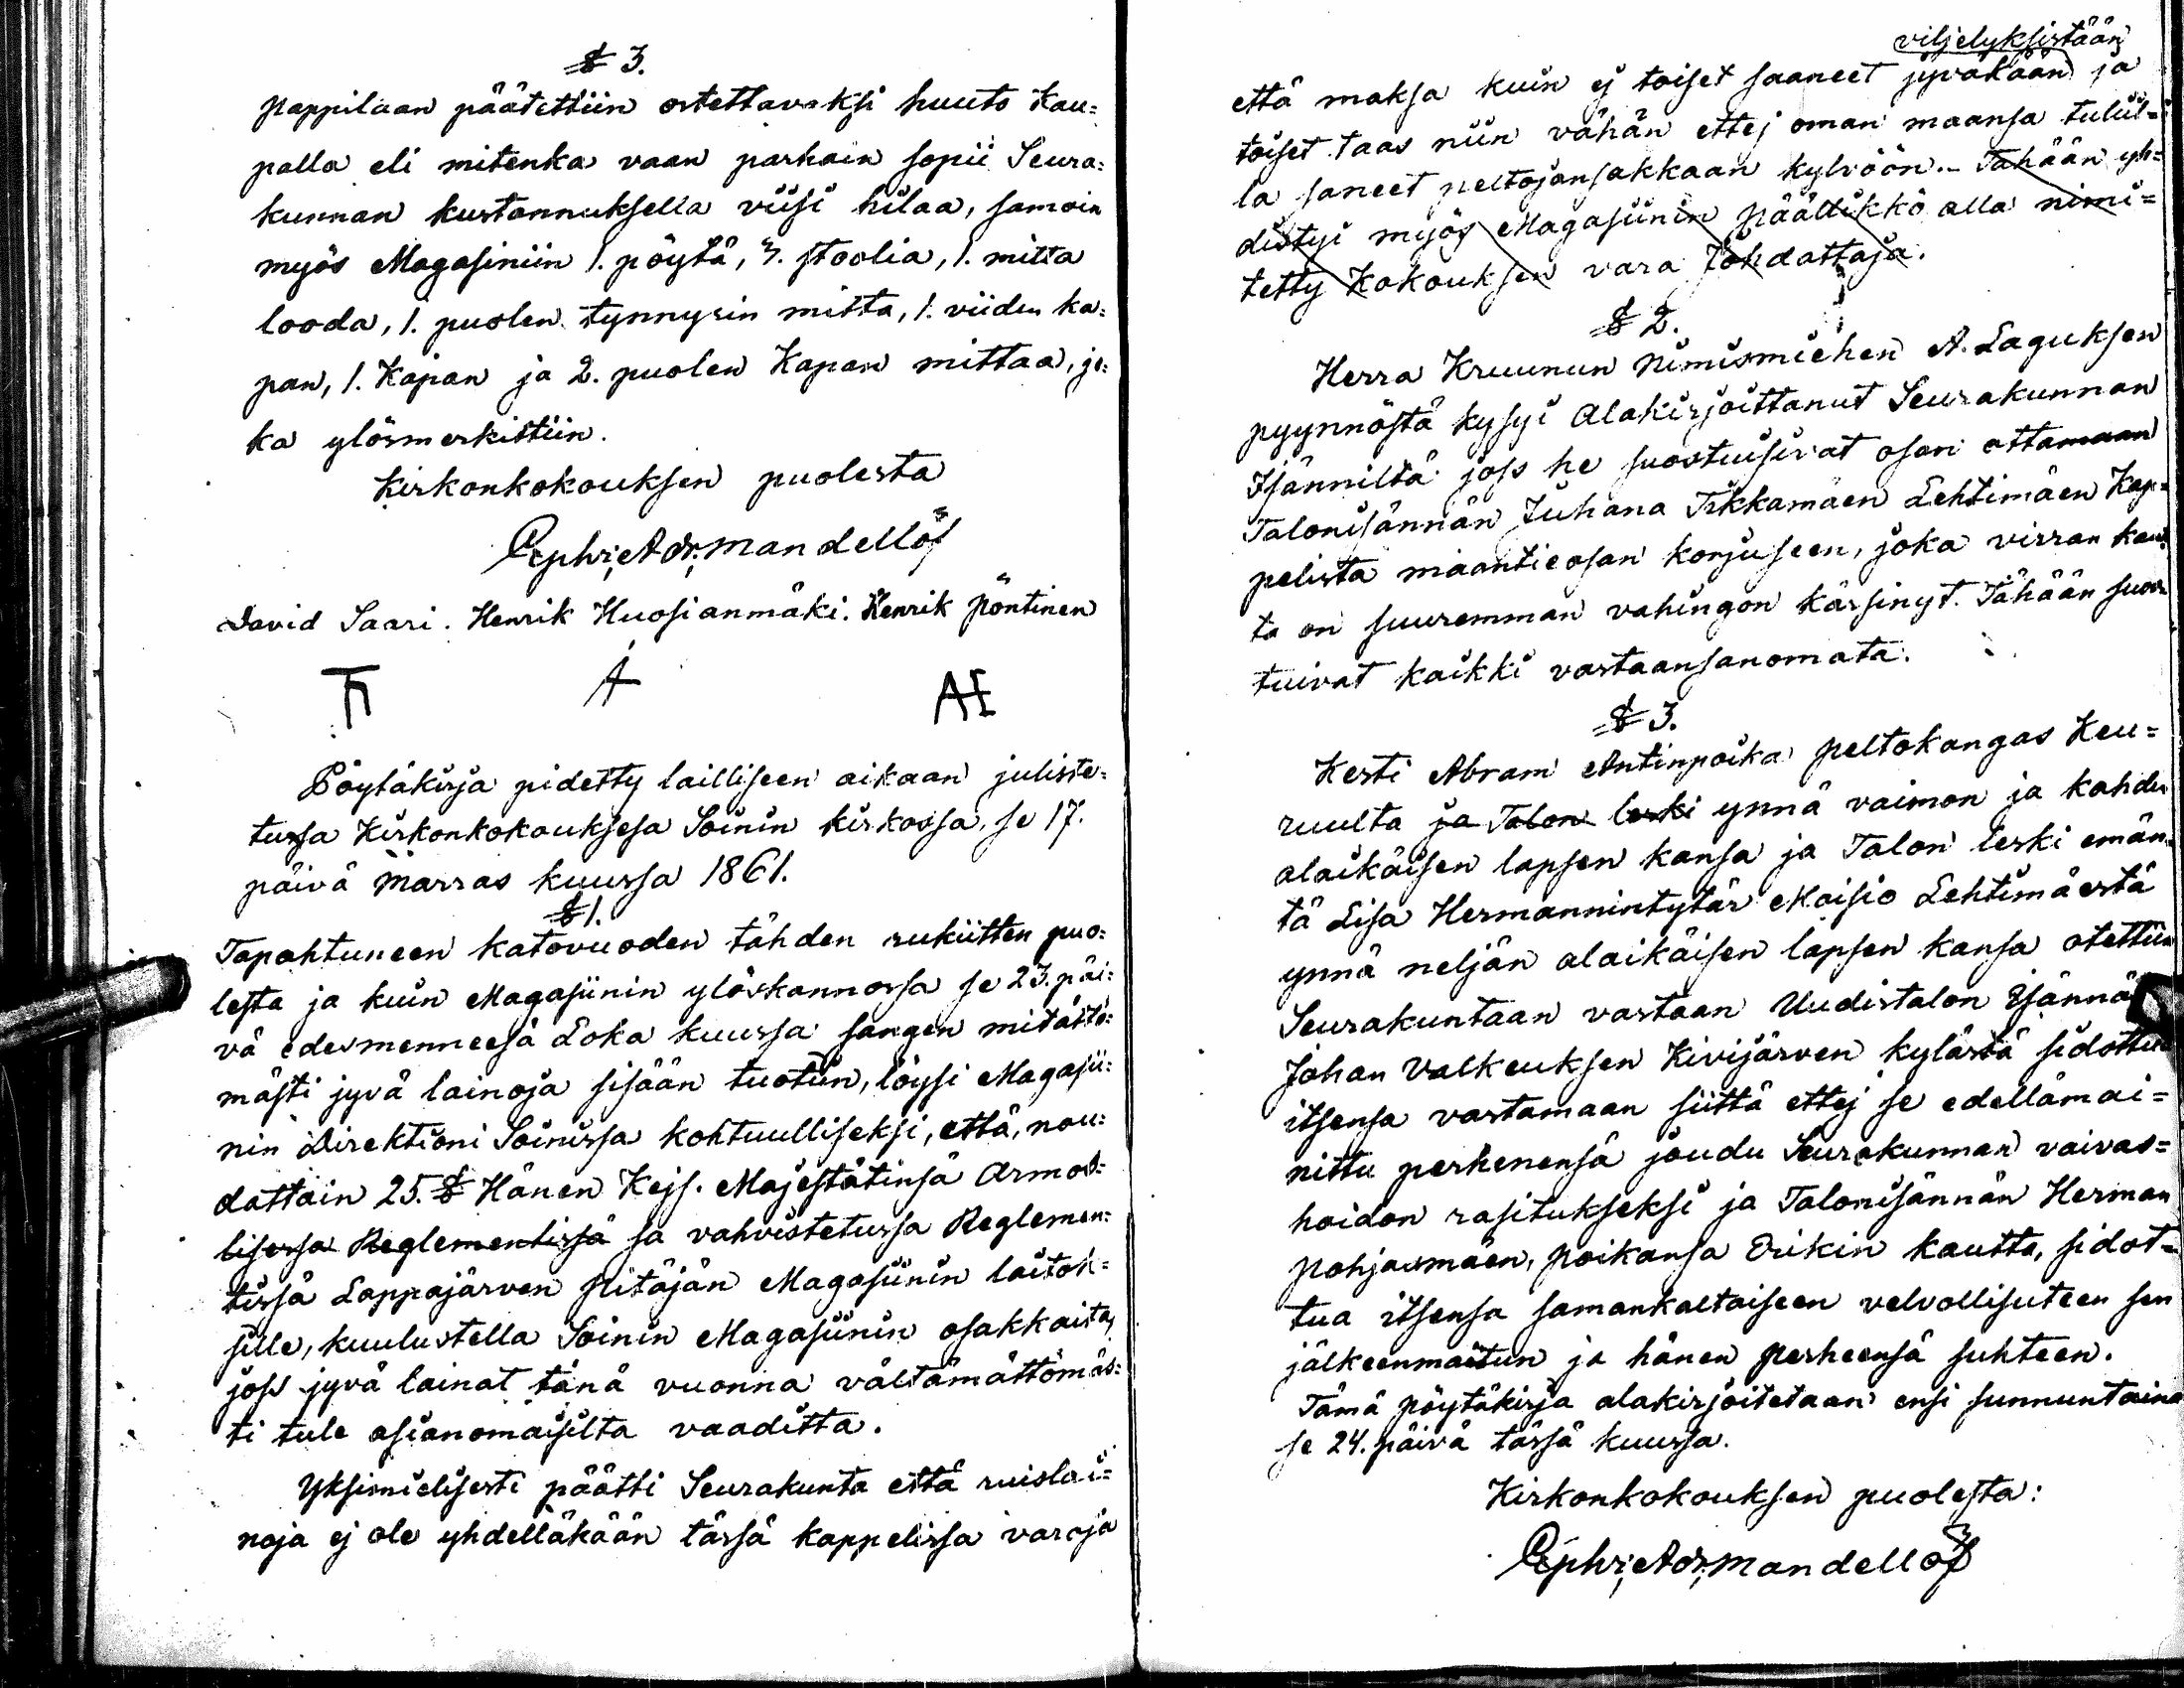 § 3.
pappilaan päätettiin ostettavaksi huuto kau=
palla eli mitenka vaan parhain sopii Seura=
kunnan kustannuksella viisi hilaa, samoin
myös Magasiniin 1. pöytä, 3. stoolia, 1. mitta
looda, 1. puolen tynnyrin mitta, 1. viiden ka=
pan, 1. Kapan ja 2. puolen Kapan mittaa, jo=
ka ylösmerkittiin.
Kirkonkokouksen puolesta
Ephr; Adr; Mandellöf
David Saari. Henrik Huosianmäki. Henrik Pöntinen
Pöytäkirja pidetty lailliseen aikaan juliste=
tussa Kirkonkokouksesa Soinin kirkossa, se 17.
päivä Marras kuussa 1861.
§ 1.
Tapahtuneen katovuoden tähden rukiitten puo=
lesta ja kuin Magasiinin ylöskannossa se 23. päi=
vä edesmenneesä Loka kuussa sangen mitättö=
mästi jyvä lainoja sisään tuotiin, löysi Magasii=
nin Direktioni Soinissa kohtuulliseksi, että, nou=
dattain 25. § Hänen Kejs. Majestätinsä Armol=
lisessa Reglementissä ja vahvistetussa Reglemen=
tissä Lappajärven Pitäjän Magasiinin laitok=
sille, kuulustella Soinin Magasiinin osakkaita,
joss jyvä lainat tänä vuonna vältämättömäs=
ti tule asianomaisilta vaaditta.
Yksimielisesti päätti Seurakunta että ruislai=
noja ej ole yhdelläkään tässä kappelissa varoja
viljelyksistään
että maksa kuin ej toiset saaneet jyväkään ja
toiset taas niin vähän ettej oman maansa tuluil=
la saneet peltojansakkaan kylvöön. Tähään yh=
distyi myös Magasiinin päällikkö alla nimi=
tetty Kokouksen vara Johdattaja.
§ 2.
Herra Kruunun Nimismiehen A. Laguksen
pyynnöstä kysyi Alakirjoittanut Seurakunnan
Isänniltä joss he suostuisivat osan ottamaan
Talonisännän Juhana Tikkamäen Lehtimäen Kap=
pelista maantieosan korjuseen, joka virran kaut
ta on suuremman vahingon kärsinyt. Tähään suos
tuivat kaikki vastaansanomata.
§ 3.
Kesti Abram Antinpoika Peltokangas Keu=
ruulta ja Talon leski ynnä vaimon ja kahden
alaikäisen lapsen kansa ja Talon leski emän
tä Lisa Hermannintytär Maisio Lehtimäestä
ynnä neljän alaikäisen lapsen kansa otettiin
Seurakuntaan vastaan Uudistalon Isännä
Johan Valkeuksen Kivijärven kylästä sidottua
itsensa vastamaan siittä ettej se edellämai=
nittu perhenensä joudu Seurakunnan vaivas=
hoidon rasitukseksi ja Talonisännän Herman
Pohjasmäen, poikansa Erikin kautta, sidot=
tua itsensa samankaltaiseen velvollisuteen sen
jälkeenmaitun ja hänen perheensä suhteen.
Tämä pöytäkirja alakirjoitetaan ensi sunnuntaina
se 24. päivä tässä kuussa.
Kirkonkokouksen puolesta:
Ephr; Adr; Mandellöf